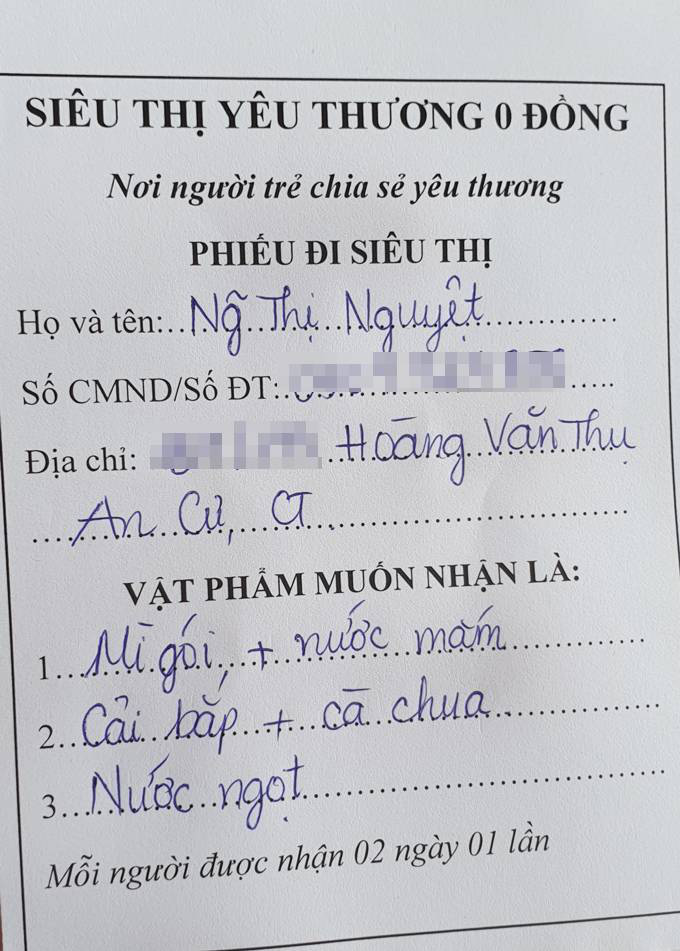 SIÊU THỊ YÊU THƯƠNG 0 ĐỒNG
Nơi người trẻ chia sẻ yêu thương
PHIẾU ĐI SIÊU THỊ
Họ và tên: Ng̃ Thị Nguyệt
Số CMND/Số ĐT:
Địa chỉ: Hoàng Văn Thụ
An Cư, CT
VẬT PHẨM MUỐN NHẬN LÀ:
1. Mì gói, + nước mắm
2. Cải bắp + cà chua
3. Nước ngọt
Mỗi người được nhận 02 ngày 01 lần